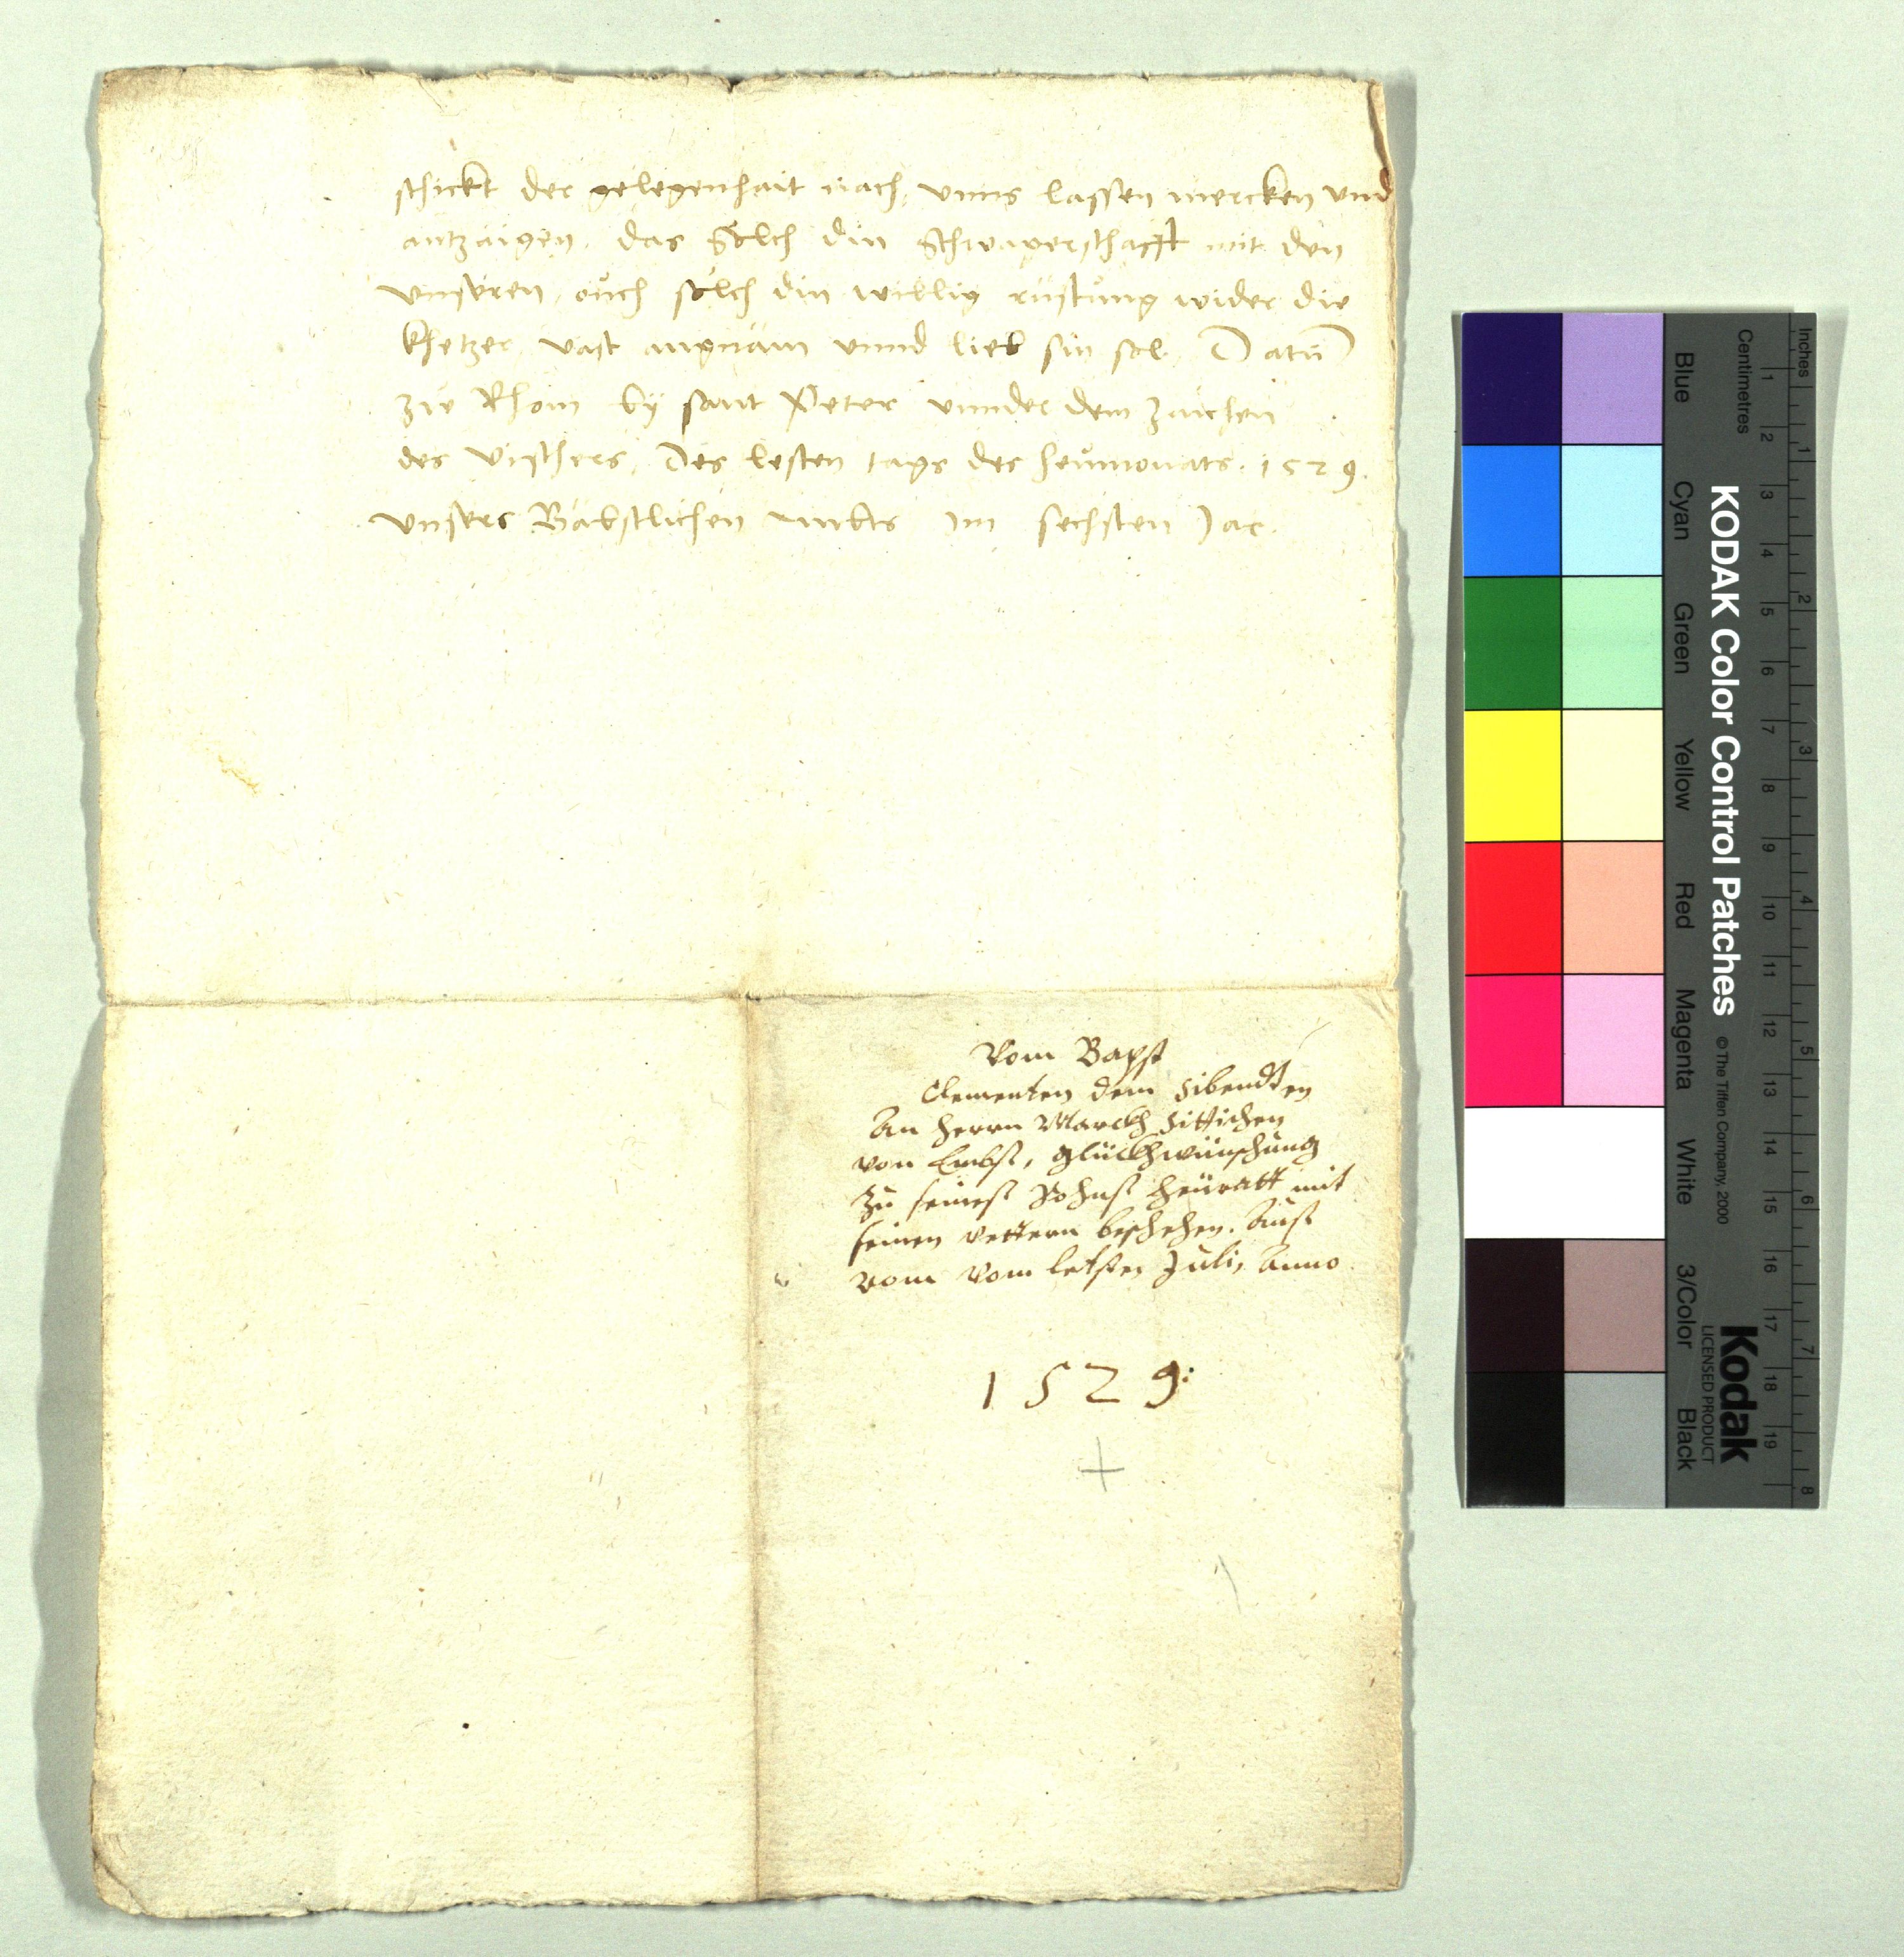 schickt der gelegenhait nach, vnns lassen mercken vnd
antzaigen, das Sölch din Schwagerschafft mit den
vnseren, ouch sölch din willig rüstung wider die
khetzer, vast angnäm vnnd lieb sin sol. Datū
zuͦ Rhom by sant Peter vnnder dem zaichen
des vischers, Des lesten tags des heumonats. 1529.
vnsers Bäbstlichen ambts Im sechsten Jar.
Vom Bapst
Clementen dem Sibendten
An herrn Marckh Sittichen
von Embs, glückhwünschung
zu seines Sohns heuratt mit
seinen vettern beschehen. Auß
Rom vom letsten Juli, Anno
1529:
Inches
Centimetres
1 2 3 4 5 6 7 8
1 2 3 4 5 6 7 8 9 10 11 12 13 14 15 16 17 18 19
KODAK Color Control Patches © The Tiffen Company, 2000
Kodak
LICENSED PRODUCT
Blue
Cyan
Green
Yellow
Red
Magenta
White
3/Color
Black